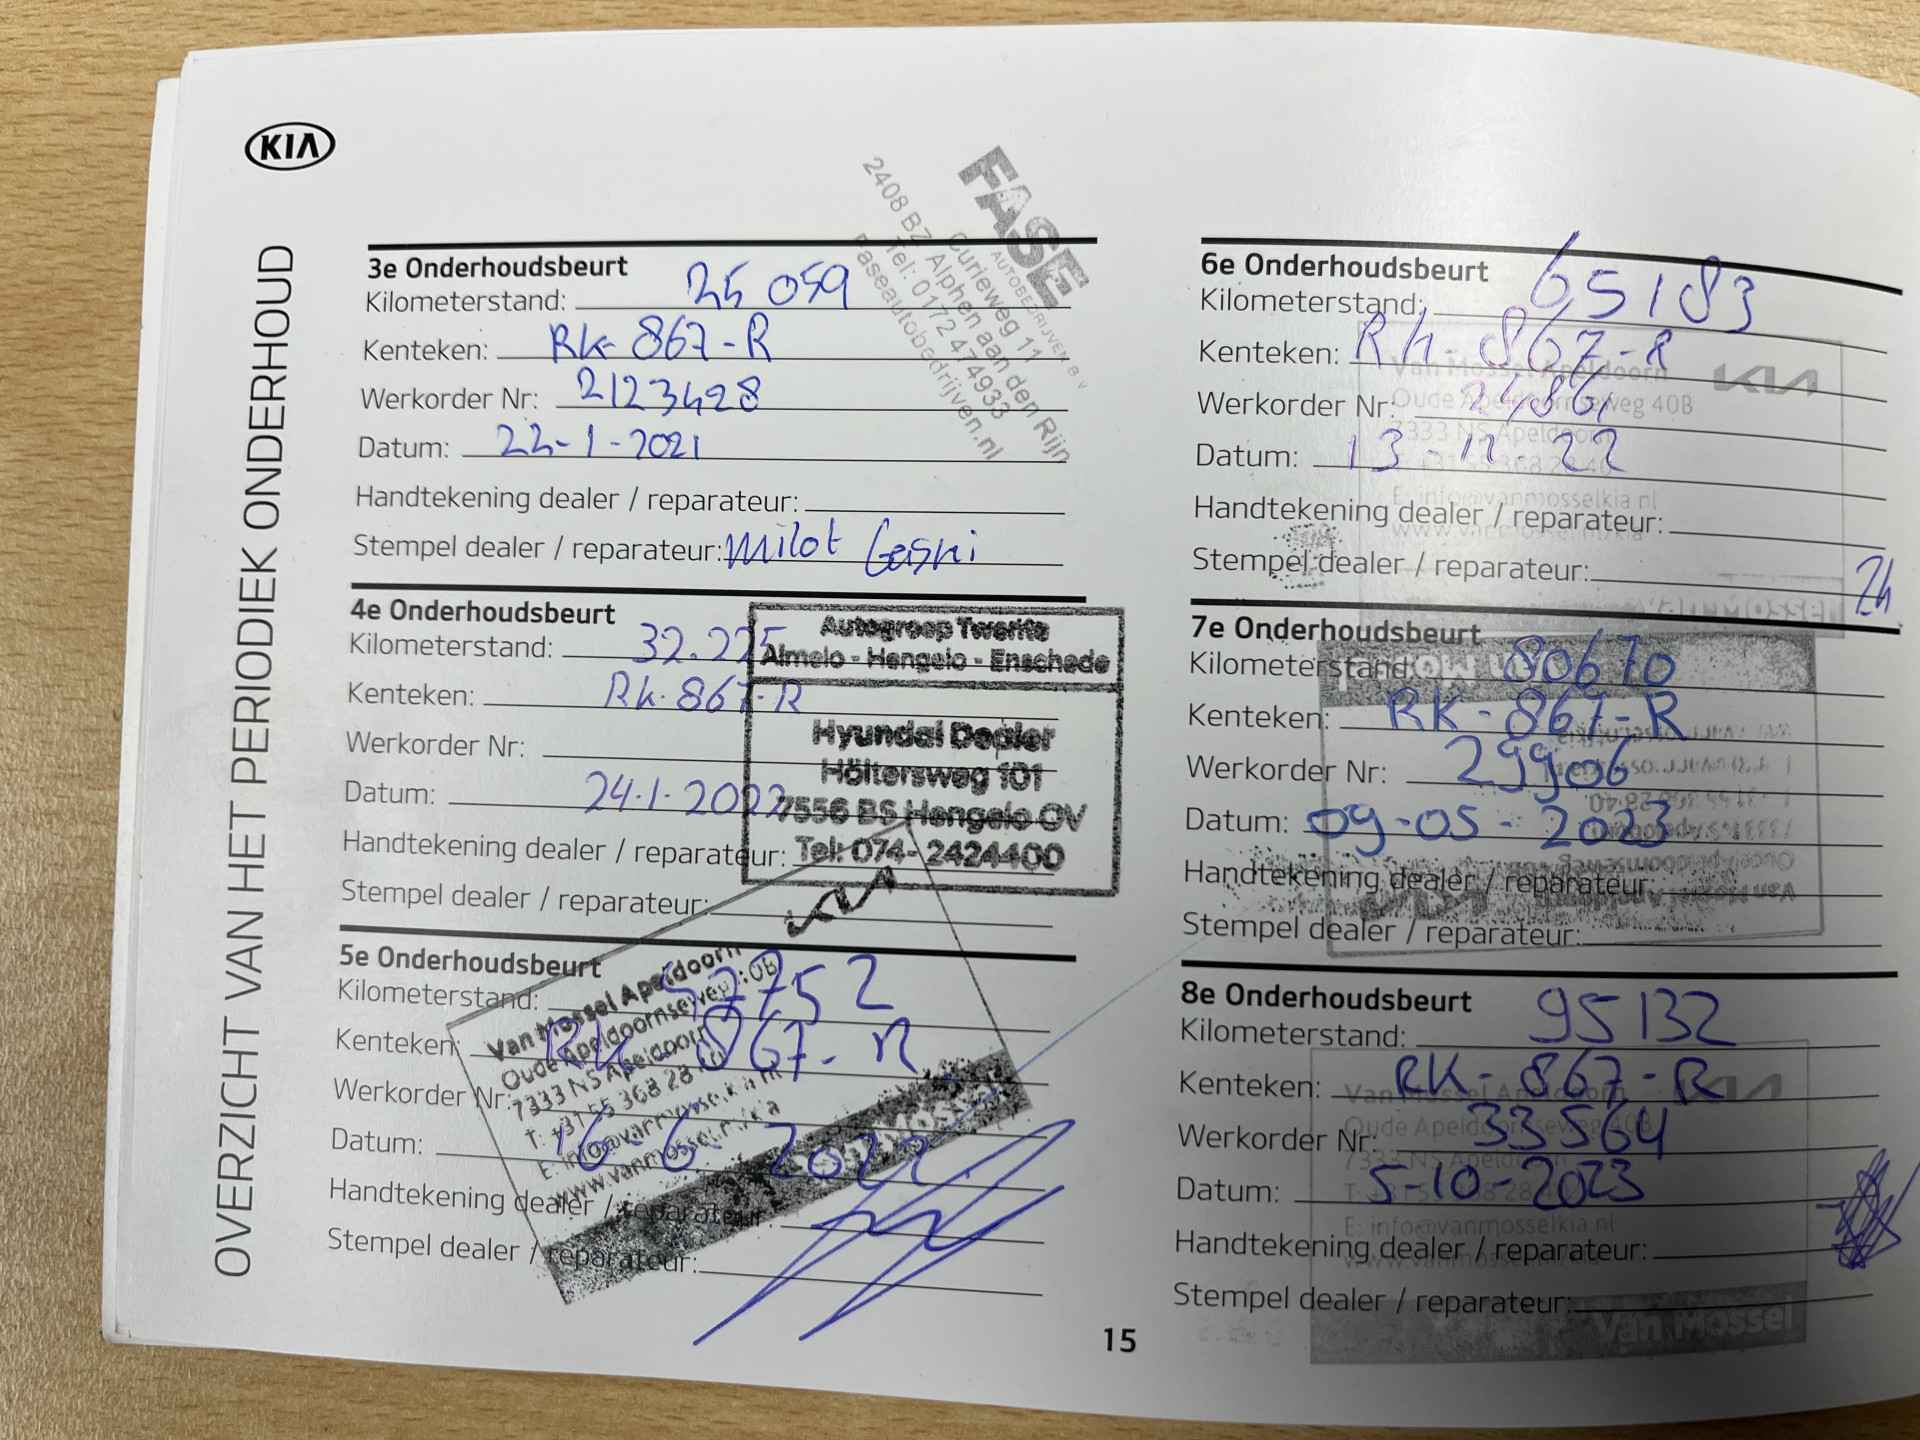 KIA
OVERZICHT VAN HET PERIODIEK ONDERHOUD
FASE
AUTOBEDRIJVEN B.V.
Curieweg 11
2408 BZ Alphen aan den Rijn
Tel: 0172 474933
Faseautobedrijven.nl
3e Onderhoudsbeurt
Kilometerstand: 25 059
Kenteken: RK-867-R
Werkorder Nr: 2123428
Datum: 22-1-2021
Handtekening dealer / reparateur:
Stempel dealer / reparateur: Milot
4e Onderhoudsbeurt
Kilometerstand: 32.225
Kenteken: RK-867-R
Werkorder Nr:
Datum: 24-1-2022
Handtekening dealer / reparateur:
Stempel dealer / reparateur:
Autogroep Twente
Almelo - Hengelo - Enschede
Hyundai Dealer
Höltersweg 101
7556 BS Hengelo OV
Tel: 074-2424400
5e Onderhoudsbeurt
Kilometerstand: 47752
Kenteken: RK-867-R
Werkorder Nr:
Datum: 16-6-2022
Handtekening dealer / reparateur:
Stempel dealer / reparateur:
KIA
Van Mossel Apeldoorn
Oude Apeldoornseweg
7333 NS Apeldoorn
T: +31 55 368 28
E: info@vanmosselkia.nl
www.vanmosselkia
Van Mossel
6e Onderhoudsbeurt
Kilometerstand: 65183
Kenteken: RK-867-R
Werkorder Nr:
Datum: 13-12-22
Handtekening dealer / reparateur:
Stempel dealer / reparateur:
KIA
Van Mossel Apeldoorn
Oude Apeldoornseweg 40B
7333 NS Apeldoorn
T: +31 55 368 28 40
E: info@vanmosselkia.nl
www.vanmosselkia.nl
Van Mossel
7e Onderhoudsbeurt
Kilometerstand: 80670
Kenteken: RK-867-R
Werkorder Nr: 29906
Datum: 09-05-2023
Handtekening dealer / reparateur:
Stempel dealer / reparateur:
8e Onderhoudsbeurt
Kilometerstand: 95132
Kenteken: RK-867-R
Werkorder Nr: 33564
Datum: 5-10-2023
Handtekening dealer / reparateur:
Stempel dealer / reparateur:
KIA
Van Mossel Apeldoorn
Oude Apeldoornseweg 40B
7333 NS Apeldoorn
E: info@vanmosselkia.nl
Van Mossel
15